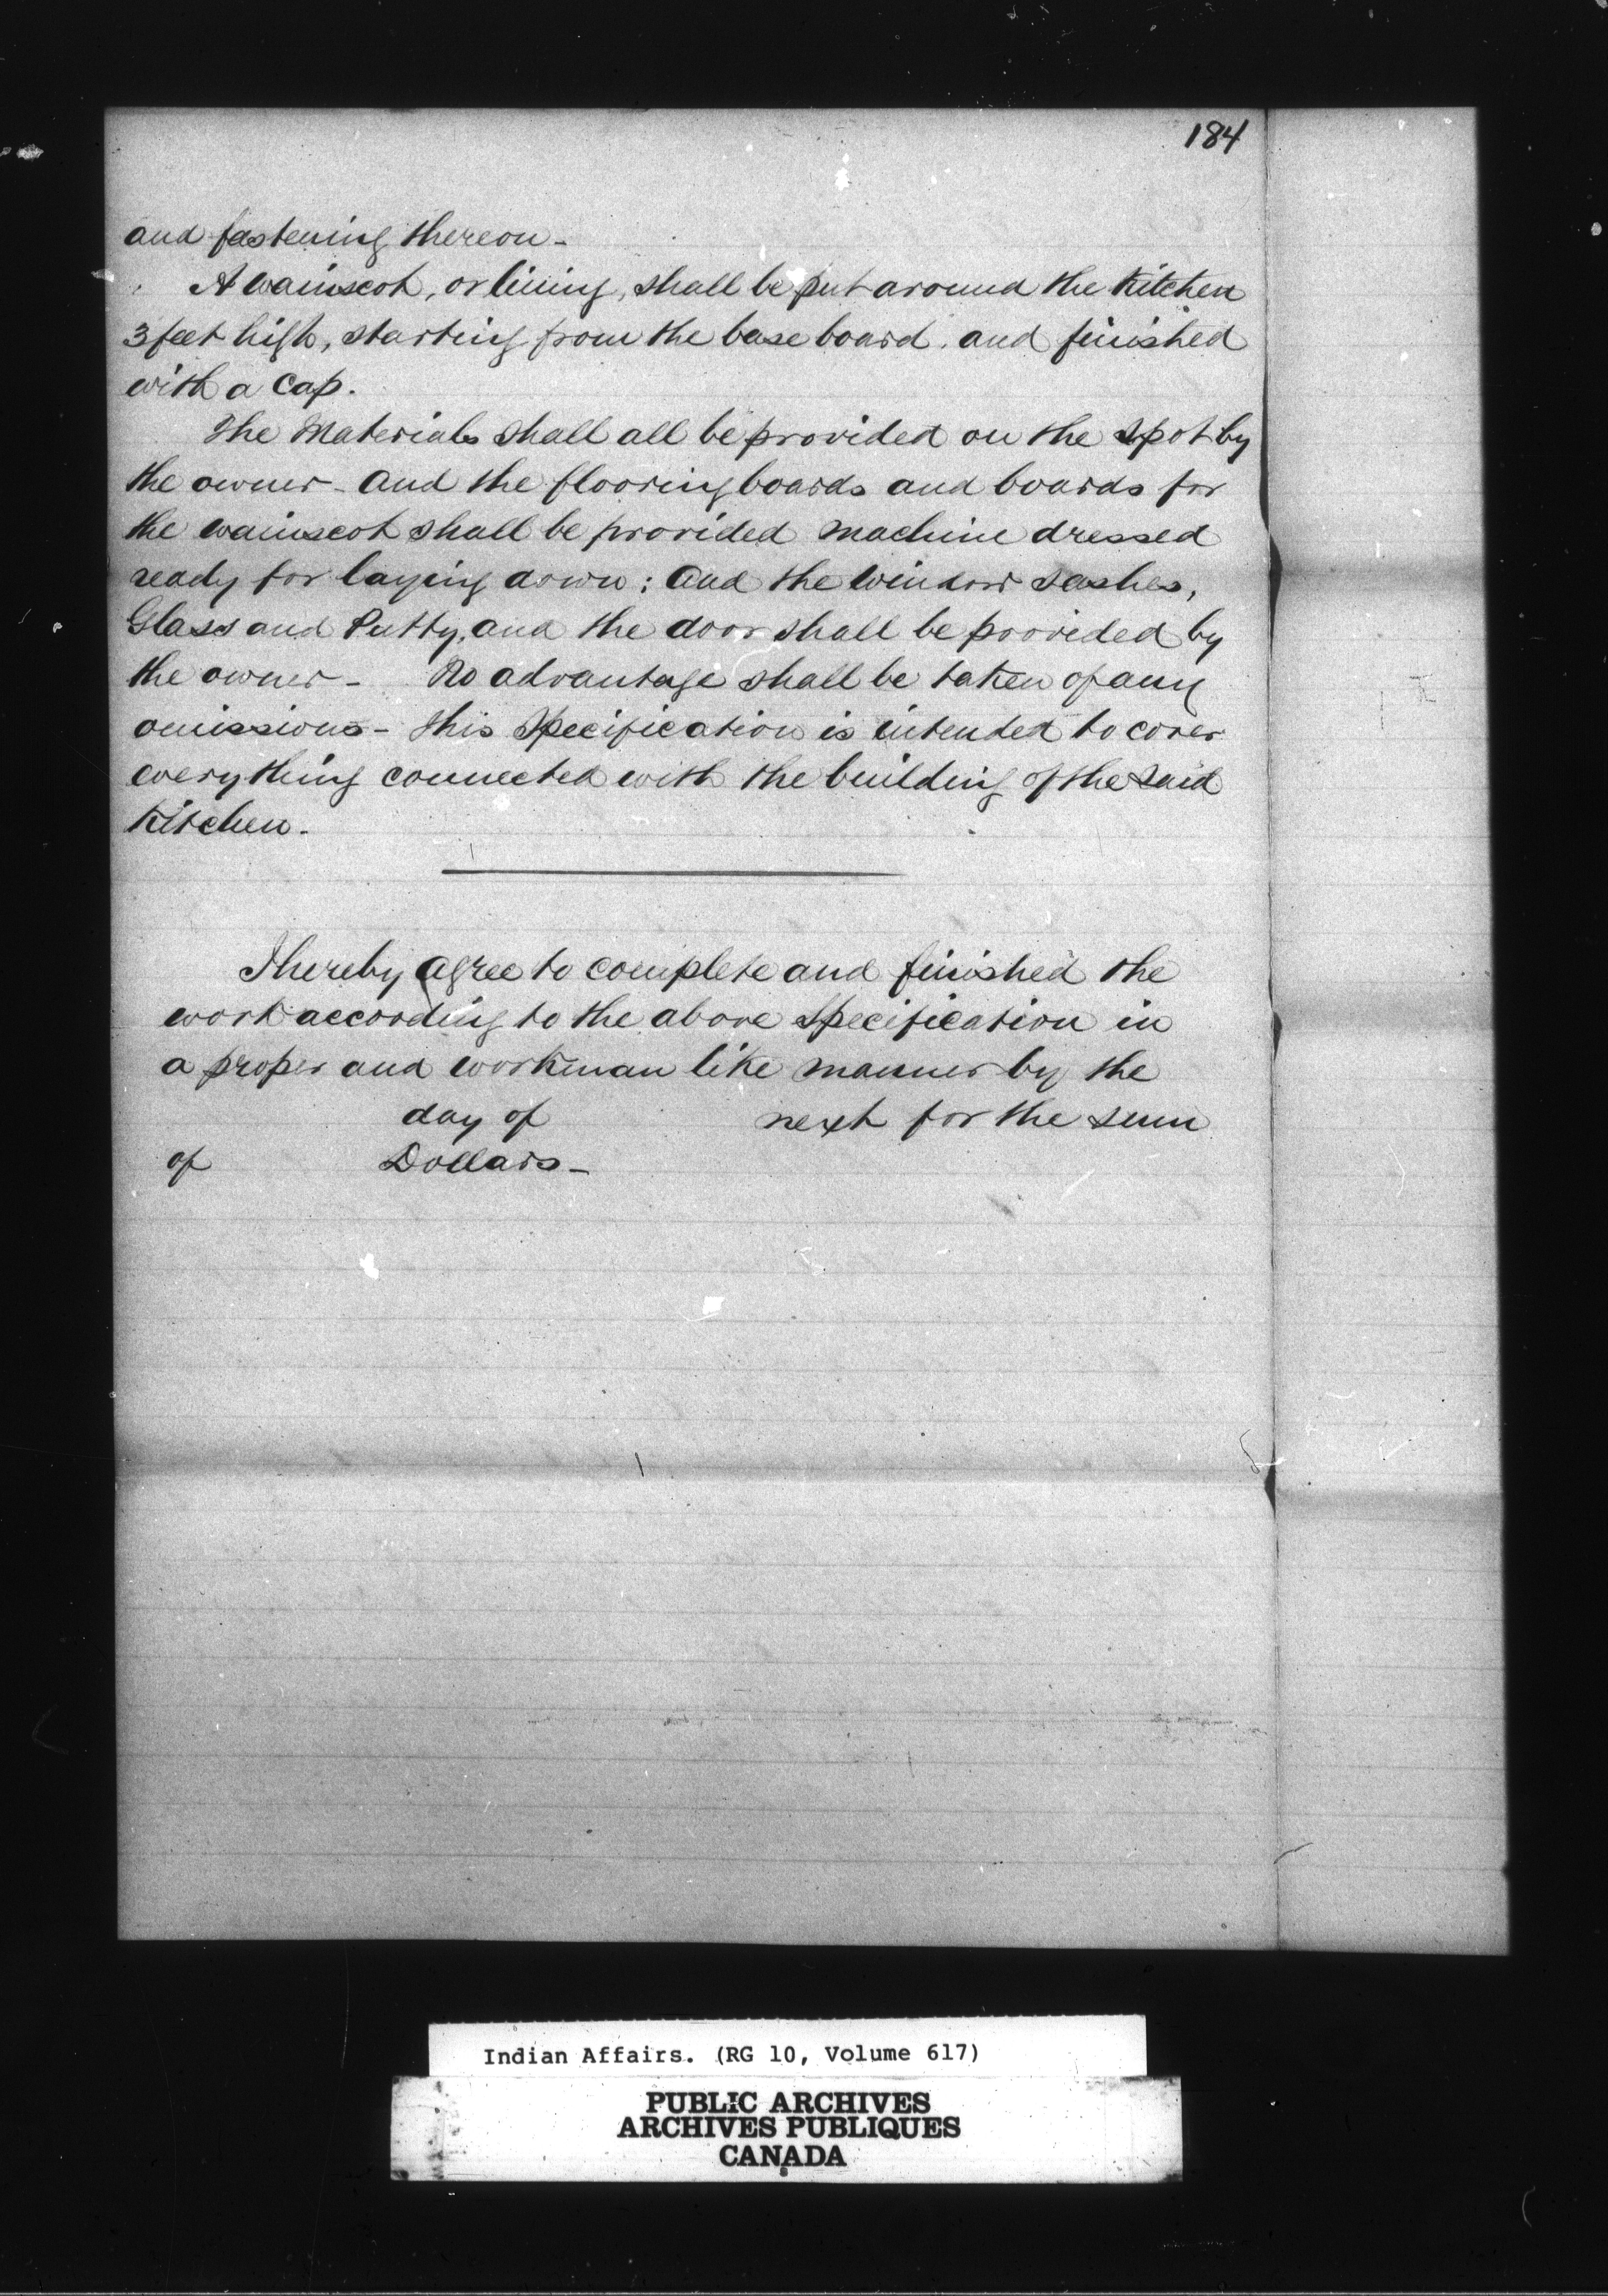 184
and fastening thereon -
A wainscot, or lining, shall be put around the Kitchen
3 feet high, starting from the base board, and finished
with a Cap.
The Materials shall all be provided on the Spot by
the owner - And the flooring boards and boards for
the wainscot shall be provided machine dressed
ready for laying down; And the Window Sashes,
Glass and Putty, and the door shall be provided by
the owner - No advantage shall be taken of any
omissions - This Specification is intended to cover
everything connected with the building of the said
Kitchen.
I hereby Agree to complete and finished the
work according to the above Specification in
a proper and workman like manner by the
day of next for the sum
of Dollars -
Indian Affairs. (RG 10, Volume 617)
PUBLIC ARCHIVES
ARCHIVES PUBLIQUES
CANADA